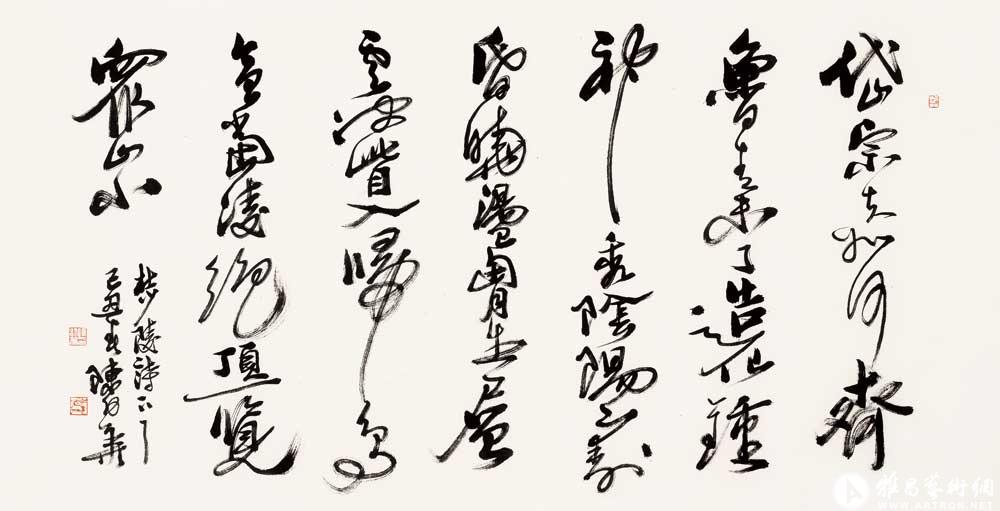 岱宗夫如何齊
魯青未了造化鍾
神秀陰陽割
昏曉盪胸生層
雲決眥入歸鳥
會當凌絕頂一覽
眾山小
杜少陵詩
己丑春陳
雅昌藝術網
WWW.ARTRON.NET